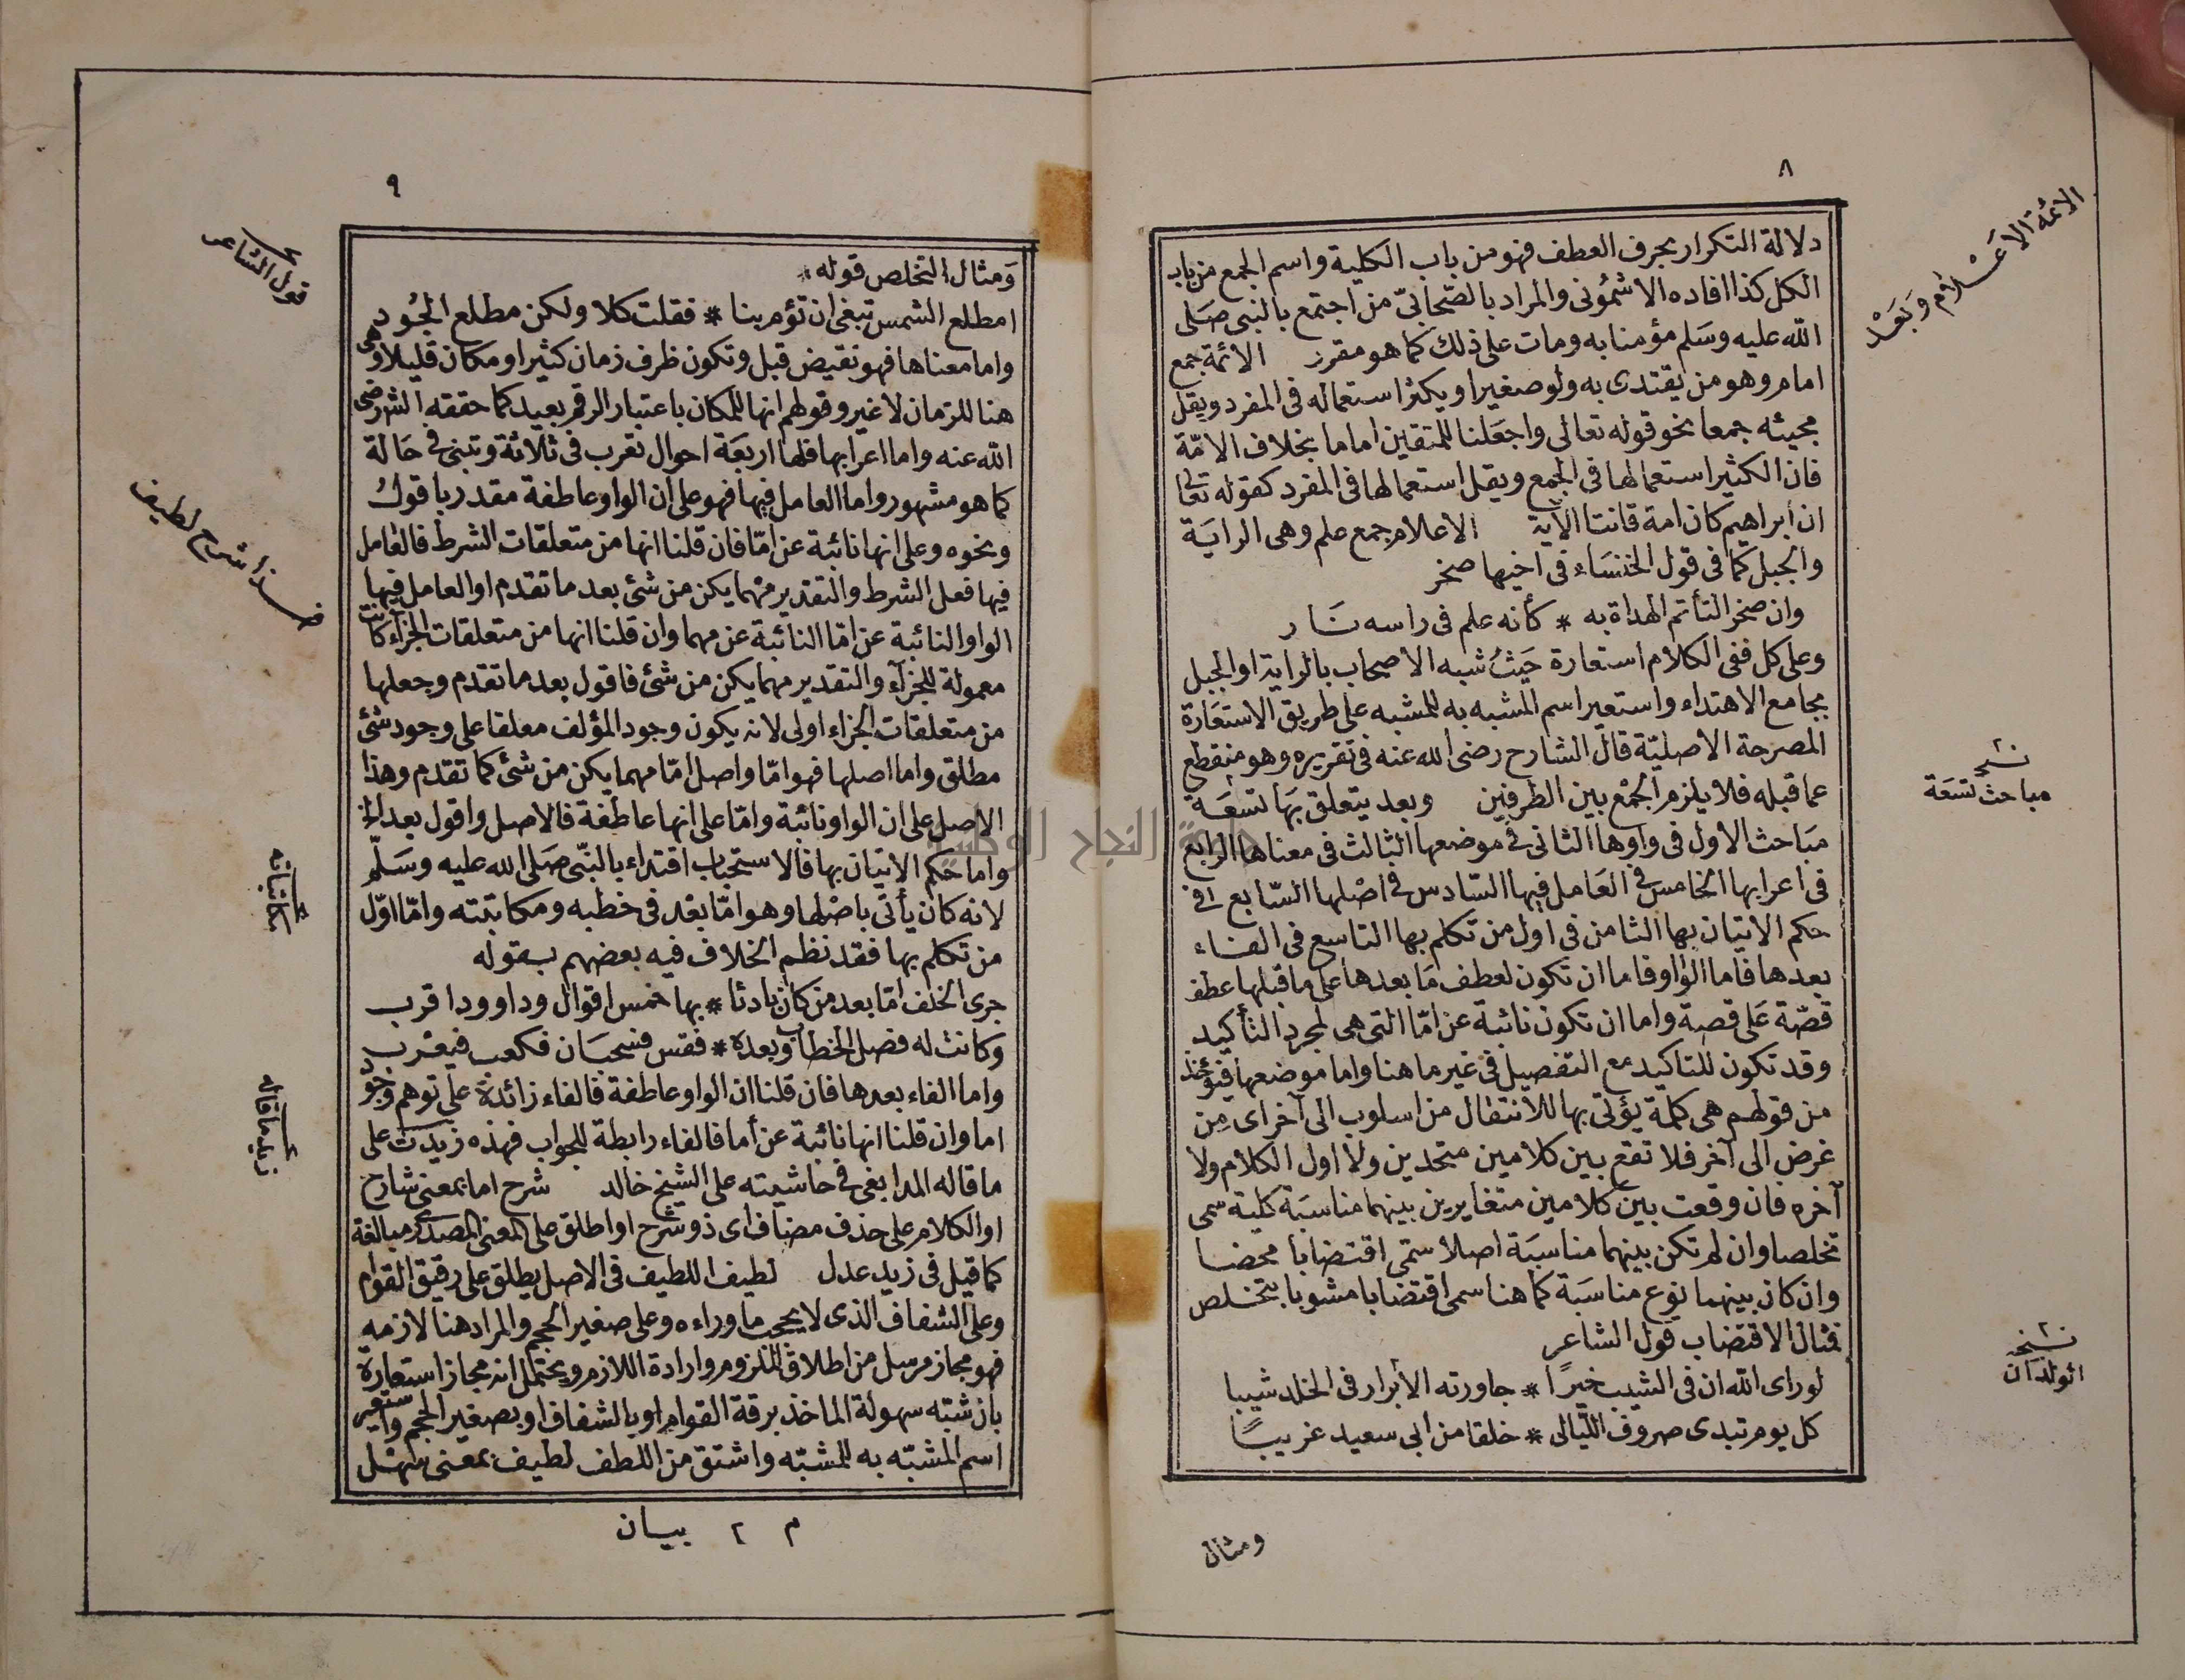 ٨
الائمة الاعلام وبعد
دلالة التكرار بحرف العطف فهو من باب الكلية واسم الجمع من باب
الكل كذا افاده الاشمونى والمراد بالصحابىّ من اجتمع بالنبى صلى
الله عليه وسلم مؤمنا به ومات على ذلك كما هو مقرر الائمة جمع
امام وهو من يقتدى به ولو صغيرا ويكثر استعماله فى المفرد ويقل
مجيئه جمعا نحو قوله تعالى واجعلنا للمتقين اماما بخلاف الامّة
فان الكثير استعمالها فى الجمع ويقل استعمالها فى المفرد كقوله تعالى
ان ابراهيم كان امة قانتا الآية الاعلام جمع علم وهى الراية
والجبل كما فى قول الخنساء فى اخيها صخر
وان صخر التأتم الهداة به * كأنه علم فى راسه نار
وعلى كل ففى الكلام استعارة حيث شبه الاصحاب بالراية او الجبل
بجامع الاهتداء واستعير اسم المشبه به للمشبه على طريق الاستعارة
المصرحة الاصليّة قال الشارح رضى الله عنه فى تقريره وهو منقطع
عما قبله فلا يلزم الجمع بين الطرفين وبعد يتعلق بها تسعة
نسخه
مباحث تسعة
مباحث الاول فى واوها الثانى فى موضعها الثالث فى معناها الرابع
فى اعرابها الخامس فى العامل فيها السّادس فى اصلها السّابع فى
حكم الاتيان بها الثامن فى اول من تكلم بها التاسع فى الفاء
بعدها فاما الواو فاما ان تكون لعطف ما بعدها على ما قبلها عطف
قصّة على قصة واما ان تكون نائبة عن امّا التى هى لمجرد التأكيد
وقد تكون للتاكيد مع التفصيل فى غير ما هنا واما موضعها فيؤخذ
من قولهم هى كلمة يؤتى بها للانتقال من اسلوب الى آخر اى من
غرض الى آخر فلا تقع بين كلامين متحدين ولا اول الكلام ولا
آخره فان وقعت بين كلامين متغايرين بينهما مناسبة كلية سمى
تخلصا وان لم تكن بينهما مناسبة اصلا سمّى اقتضابا محضا
وان كان بينهما نوع مناسبة كما هنا سمى اقتضابا مشوبا بتخلص
فمثال الاقتضاب قول الشاعر
لو راى الله ان فى الشيب خيرًا * جاورته الأبرار فى الخلد شيبا
نسخه
الولدان
كل يوم تبدى صروف الليالى * خلقا من أبى سعيد غريبًا
ومثال
٩
قول الشاعر
ومثال التخلص قوله
امطلع الشمس تبغى ان تؤم بنا * فقلت كلا ولكن مطلع الجود
واما معناها فهو نقيض قبل وتكون ظرف زمان كثيرا ومكان قليلا وهى
هنا للزمان لا غير وقولهم انها للمكان باعتبار الرقم بعيد كما حققه الش رضى
الله عنه واما اعرابها فلها اربعة احوال تعرب فى ثلاثة وتبنى فى حالة
كما هو مشهور واما العامل فيها فهو على ان الواو عاطفة مقدر باقول
ونحوه وعلى انها نائبة عن امّا فان قلنا انها من متعلقات الشرط فالعامل
هذا شرح لطيف
فيها فعل الشرط والتقدير مهما يكن من شئ بعد ما تقدم او العامل فيها
الواو النائبة عن امّا النائبة عن مهما وان قلنا انها من متعلقات الجزاء كانت
معمولة للجزاء والتقدير مهما يكن من شئ فاقول بعد ما تقدم وجعلها
من متعلقات الجزاء اولى لانه يكون وجود المؤلف معلقا على وجود شئ
مطلق واما اصلها فهو امّا واصل امّا مهما يكن من شئ كما تقدم وهذا
الاصل على ان الواو نائبة وامّا على انها عاطفة فالاصل واقول بعد الخ
واما حكم الاتيان بها فالاستحباب اقتداء بالنبى صلى الله عليه وسلم
لانه كان يأتى باصلها وهو امّا بعد فى خطبه ومكاتبته وامّا اوّل
مكاتباته
من تكلم بها فقد نظم الخلاف فيه بعضهم بقوله
جرى الخلف امّا بعد من كان بادئا * بها خمس اقوال وداوود اقرب
وكانت له فصل الخطاب وبعده * فقس فسحبان فكعب فيعرب
واما الفاء بعدها فان قلنا ان الواو عاطفة فالفاء زائدة على توهم وجود
اما وان قلنا انها نائبة عن أما فالفاء رابطة للجواب فهذه زيدت على
زيد ما قاله
ما قاله المدابغى فى حاشيته على الشيخ خالد شرح اما بمعنى شارح
او الكلام على حذف مضاف اى ذو شرح او اطلق على المعنى المصدرى مبالغة
كما قيل فى زيد عدل لطيف اللطيف فى الاصل يطلق على رقيق القوام
وعلى الشفاف الذى لا يحجب ما وراءه وعلى صغير الحجم والمراد هنا لازمه
فهو مجاز مرسل من اطلاق الملزوم وارادة اللازم ويحتمل انه مجاز استعارة
بان شبّه سهولة الماخذ برقة القوام او بالشفاف او بصغير الحجم واستعير
اسم المشبّه به للمشبّه واشتق من اللطف لطيف بمعنى سهل
م ٢ بيان
جامعة النجاح الوطنية